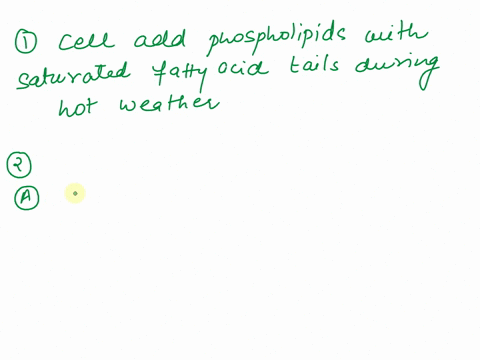 ① Cell add phospholipids with
saturated fatty acid tails during
hot weather
②
Ⓐ